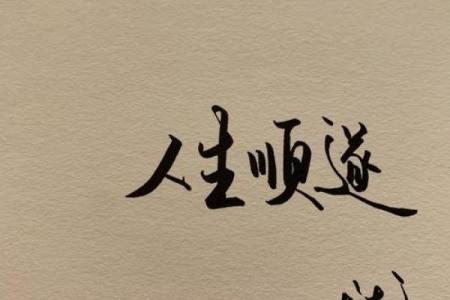 人生顺遂